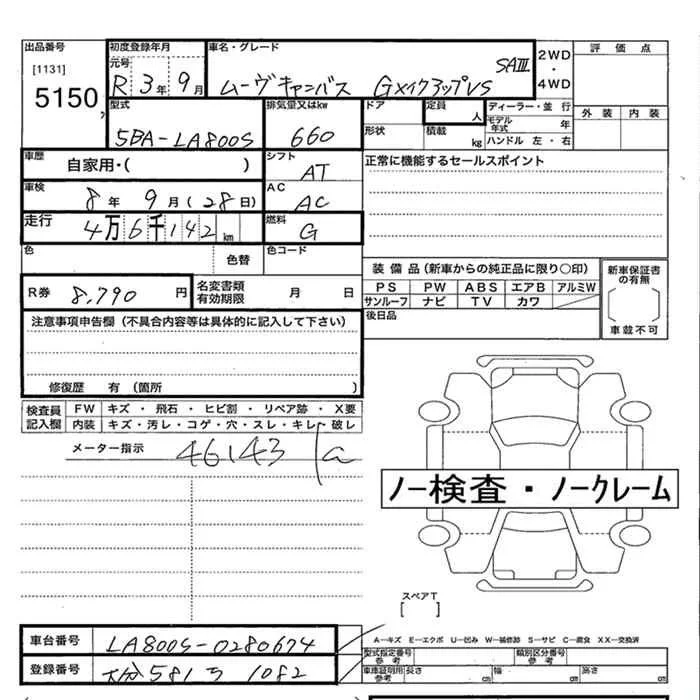 出品番号 初度登録年月 車名・グレード 2WD・4WD 評価点
[1131] 元号 SAⅢ
5150 R 3年 9月 ムーヴキャンバス GメイクアップVS
型式 排気量又はkw ドア 定員 人 ディーラー・並行 外装 内装
モデル年式 年
5BA-LA800S 660 形状 積載 kg ハンドル 左・右
車歴 自家用・( ) シフト AT 正常に機能するセールスポイント
車検 8年 9月(28日) AC AC
走行 4万6千142km 燃料 G
色 色替 色コード
装備品(新車からの純正品に限り○印) 新車保証書の有無
R券 8,790円 名変書類有効期限 月 日 PS PW ABS エアB アルミW
サンルーフ ナビ TV カワ
注意事項申告欄(不具合内容等は具体的に記入して下さい) 後日品 車載不可
修復歴 有(箇所 )
検査員記入欄 FW キズ・飛石・ヒビ割・リペア跡・X要
内装 キズ・汚レ・コゲ・穴・スレ・キレ・破レ
メーター指示 46143
ノー検査・ノークレーム
スペアT
[ ]
A-キズ E-エクボ U-凹み W-補修跡 S-サビ C-腐食 XX-交換済
車台番号 LA800S-0280674 型式指定番号 参考 類別区分番号 参考
登録番号 大分581う1082 車庫証明用 参考 長さ cm 幅 cm 高さ cm